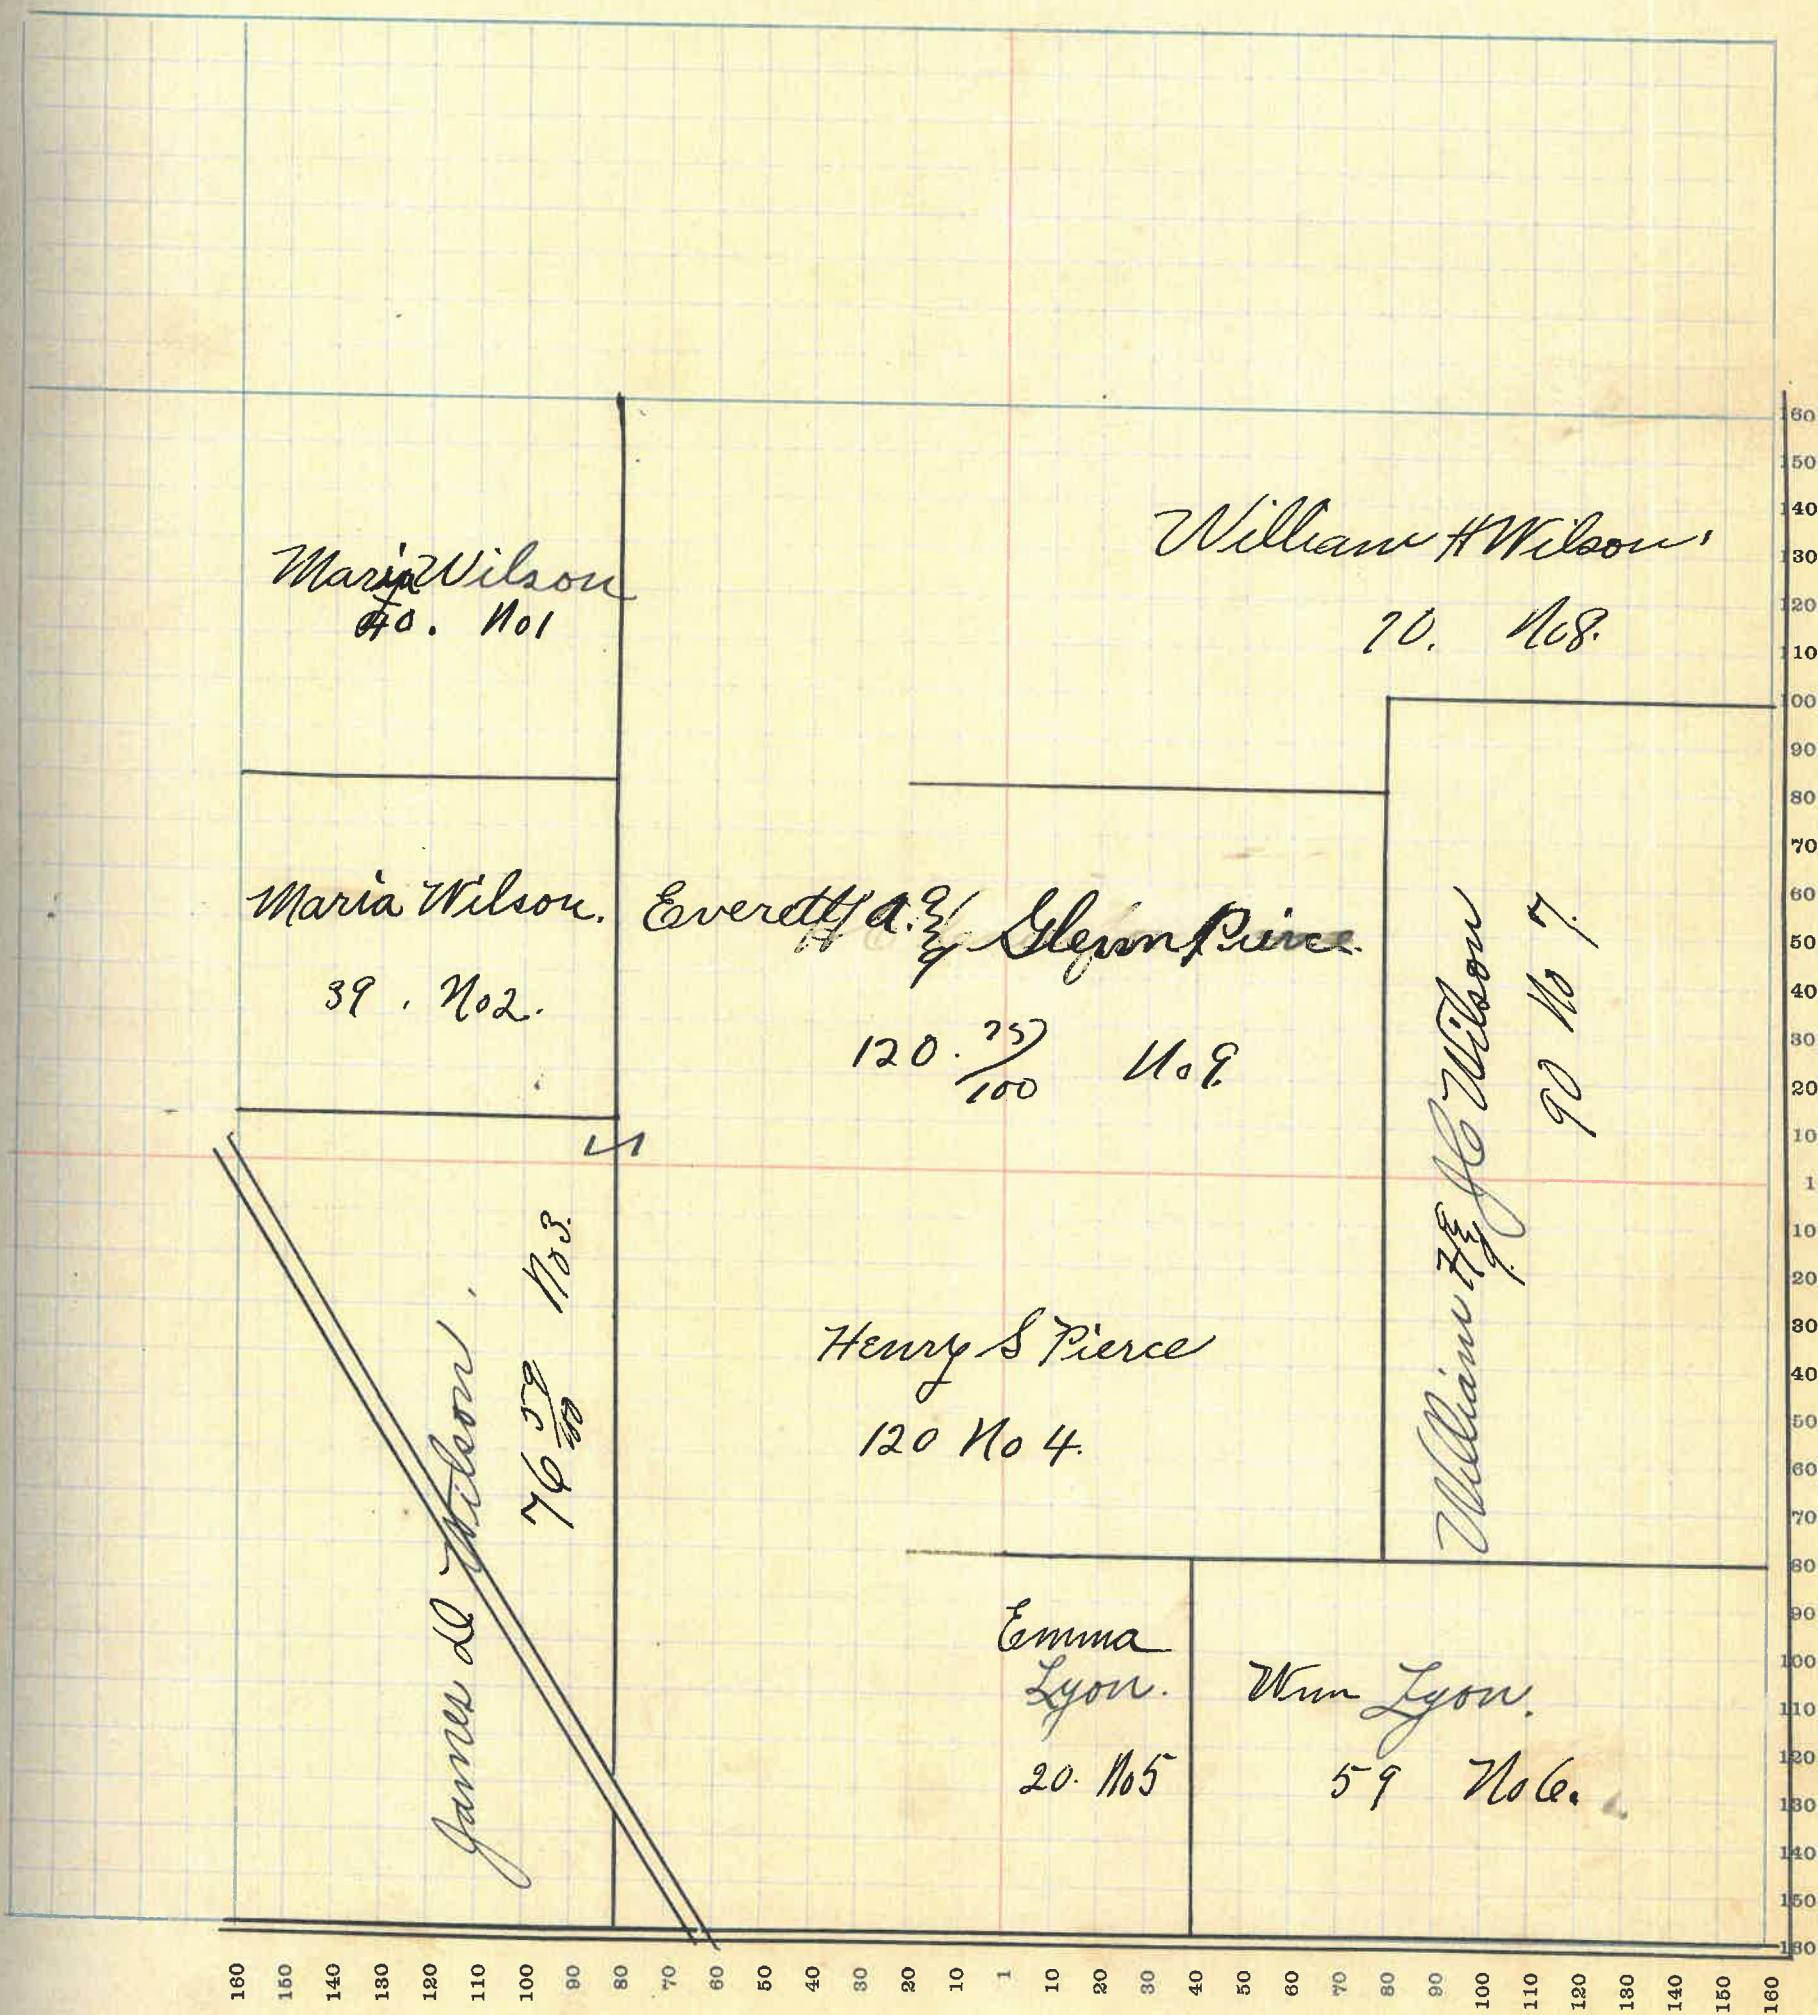 Maria Wilson
40. No1
William H Wilson.
70. No8.
Maria Wilson.
39. No2.
Everett A. & Glenn Pierce.
120. 75/100 No9.
William H & J C Wilson
90 No 7.
James D Wilson.
76 59/100 No3.
Henry S Pierce
120 No 4.
Emma
Lyon.
20. No5
Wm Lyon.
59 No6.
160
150
140
130
120
110
100
90
80
70
60
50
40
30
20
10
1
10
20
30
40
50
60
70
80
90
100
110
120
130
140
150
160
160 150 140 130 120 110 100 90 80 70 60 50 40 30 20 10 1 10 20 30 40 50 60 70 80 90 100 110 120 130 140 150 160